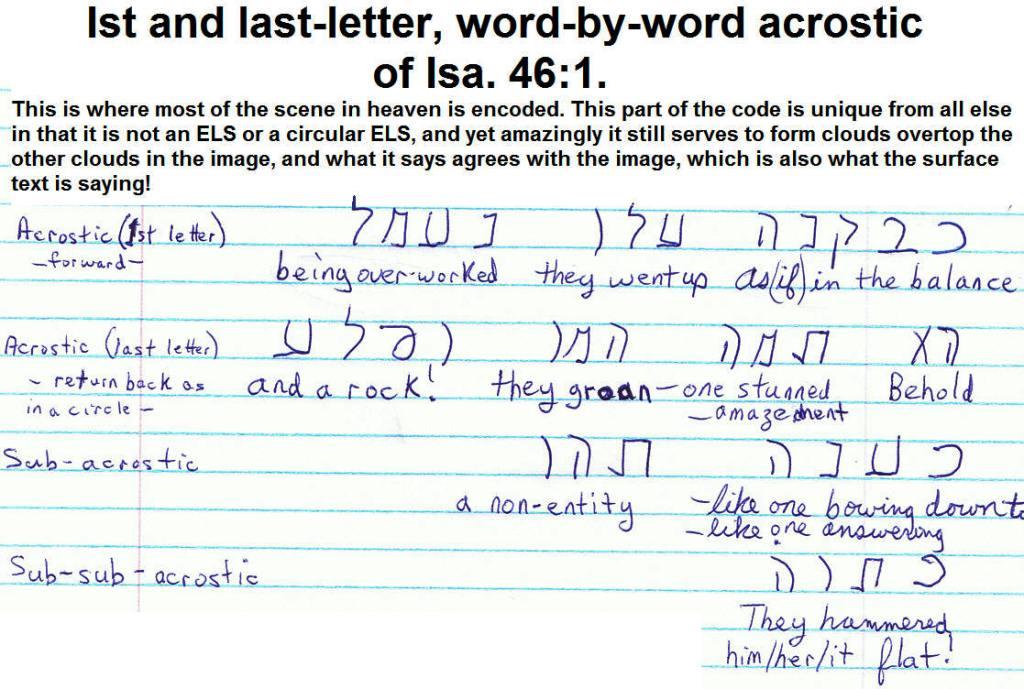 Ist and last-letter, word-by-word acrostic
of Isa. 46:1.
This is where most of the scene in heaven is encoded. This part of the code is unique from all else
in that it is not an ELS or a circular ELS, and yet amazingly it still serves to form clouds overtop the
other clouds in the image, and what it says agrees with the image, which is also what the surface
text is saying!
Acrostic (1st letter) כבקנה עלו נעמל
-forward-
being over-worked they went up as(if) in the balance
Acrostic (last letter) הא תמה המו וסלע
- return back as
in a circle -
and a rock! they groan - one stunned Behold
- amazement
Sub-acrostic כענה תהו
a non-entity - like one bowing down to
- like one answering
Sub-sub-acrostic כתוה
They hammered
him/her/it flat!